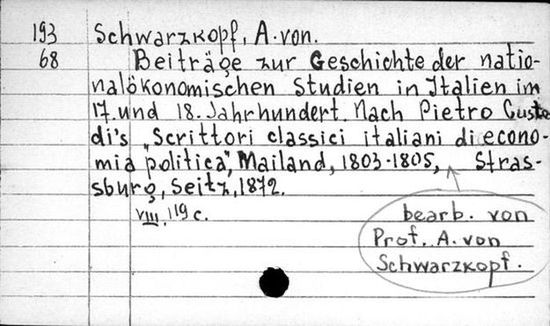 193 Schwarzkopf, A. von.
68 Beiträge zur Geschichte der natio-
nalökonomischen Studien in Italien im
17. und 18. Jahrhundert. Nach Pietro Custo
di's „Scrittori classici italiani di econo-
mia politica", Mailand, 1803-1805, Stras-
sburg, Seitz, 1872.
VIII, 119 c.
bearb. von
Prof. A. von
Schwarzkopf.